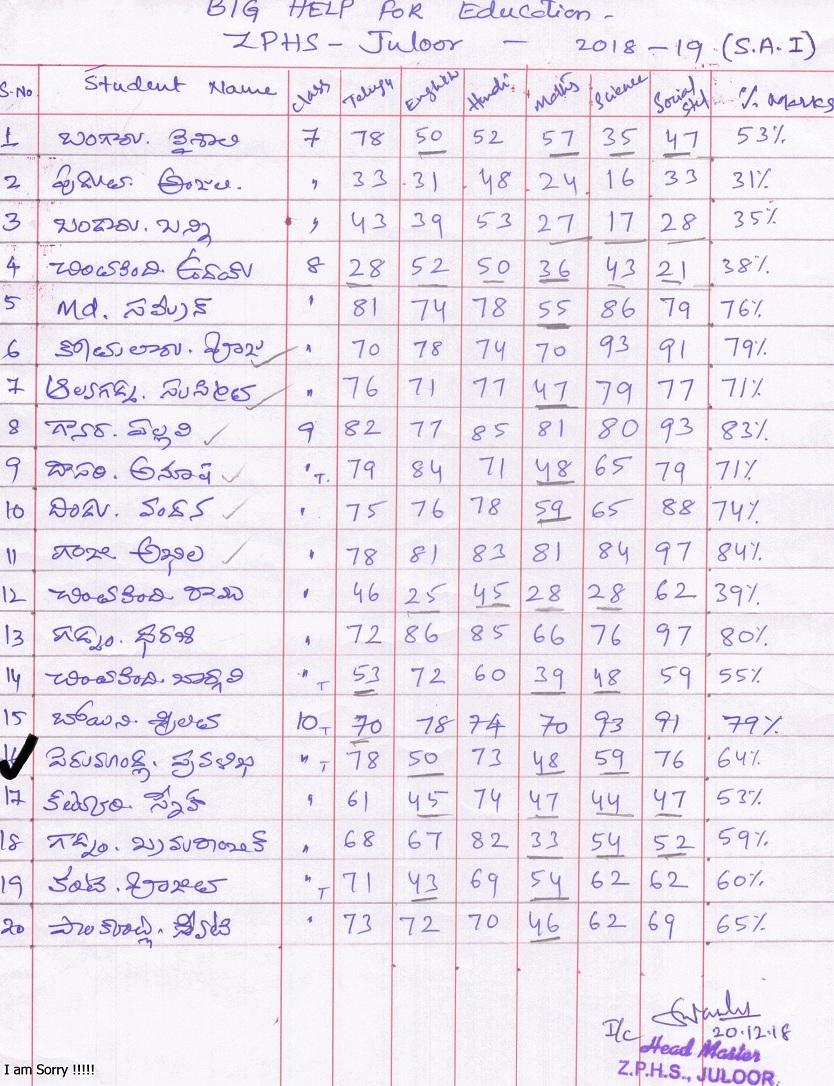 BIG HELP FOR Education -
ZPHS - Juloor - 2018-19 (S.A.I)
S.No Student Name Class Telugu English Hindi Maths Science Social Std % Marks
1 బంగారు. వైశాలి 7 78 50 52 57 35 47 53%
2 అంజలి. " 33 31 48 24 16 33 31%
3 బండారు. బన్ని " 43 39 53 27 17 28 35%
4 చింతకింది. ఉదయ్ 8 28 52 50 36 43 21 38%
5 Md. సమీర్ " 81 74 78 55 86 79 76%
6 " 70 78 74 70 93 91 79%
7 " 76 71 77 47 79 77 71%
8 పల్లవి 9 82 77 85 81 80 93 83%
9 దాసరి. అనూష " T. 79 84 71 48 65 79 71%
10 దిండు. వందన " 75 76 78 59 65 88 74%
11 గంజి అఖిల " 78 81 83 81 84 97 84%
12 చింతకింది రాము " 46 25 45 28 28 62 39%
13 గడ్డం. ధరణి " 72 86 85 66 76 97 80%
14 చింతకింది. భార్గవి " T 53 72 60 39 48 59 55%
15 బోయిని. శ్రీలత 10 T 70 78 74 70 93 91 79%
16 ప్రవళిక " T 78 50 73 48 59 76 64%
17 " 61 45 74 47 44 47 53%
18 గడ్డం. " 68 67 82 33 54 52 59%
19 " T 71 43 69 54 62 62 60%
20 " 73 72 70 46 62 69 65%
I/c 20.12.18
Head Master
Z.P.H.S., JULOOR.
I am Sorry !!!!!